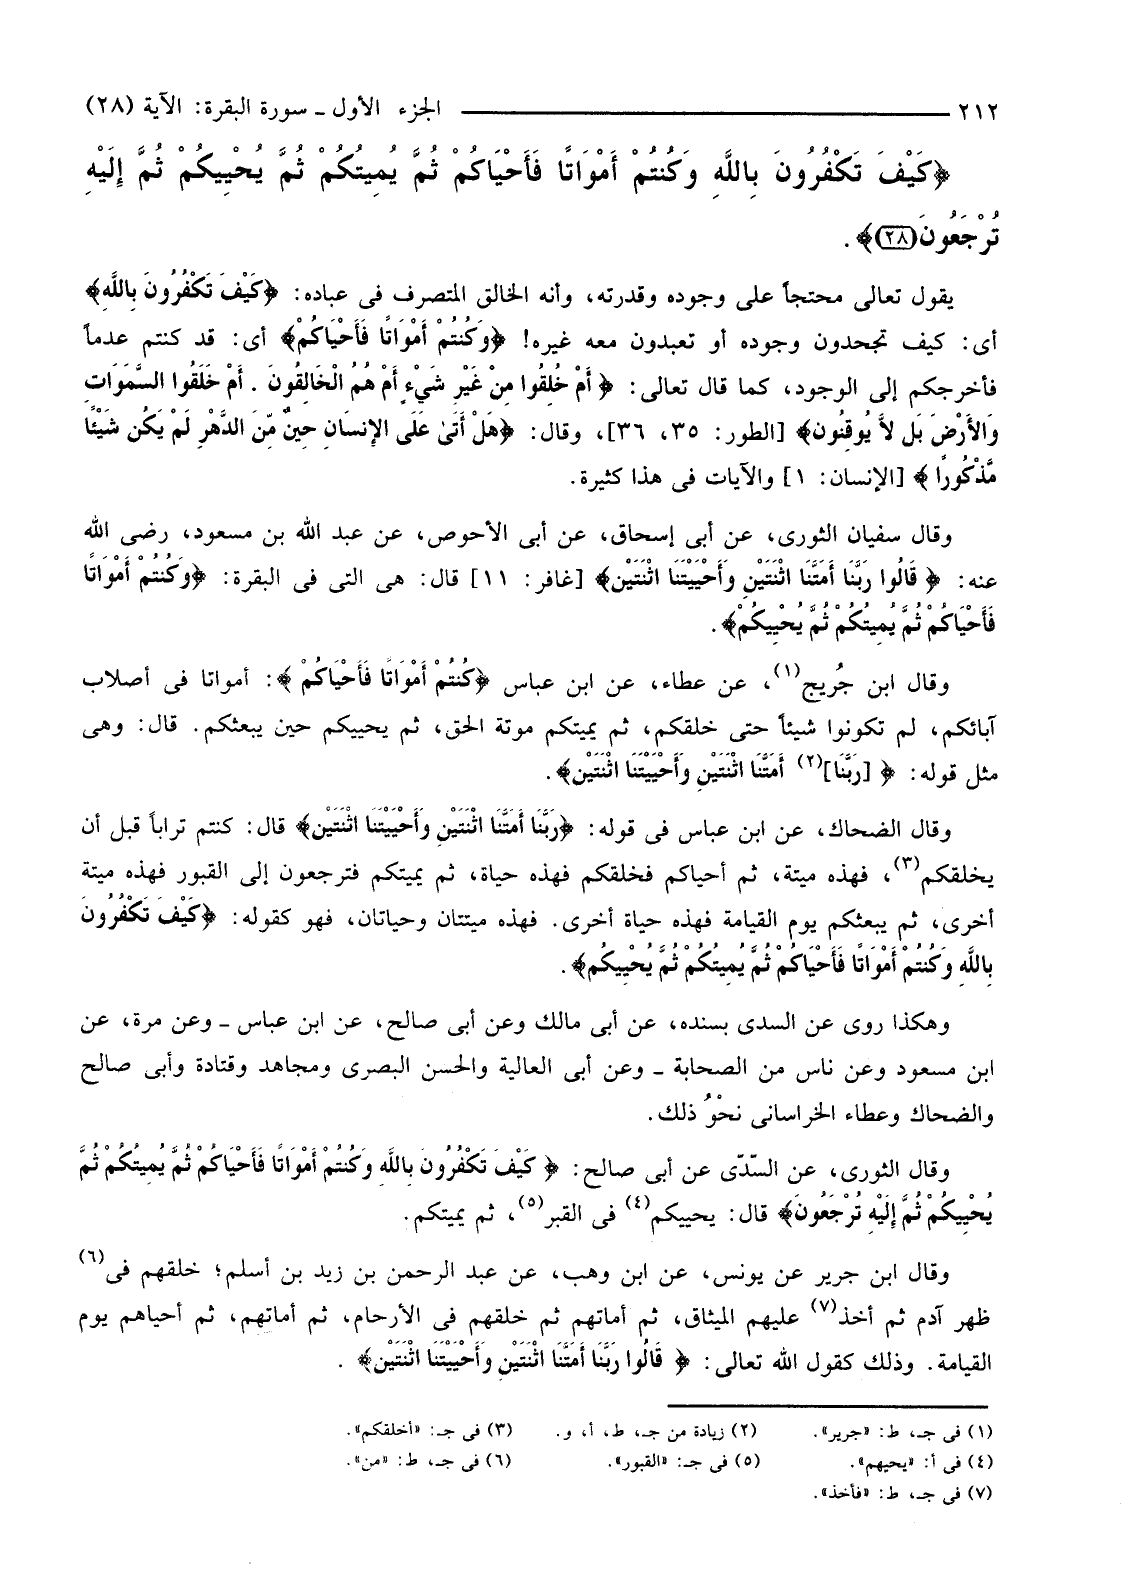 ٢١٢ الجزء الأول ـ سورة البقرة: الآية (٢٨)
﴿كَيْفَ تَكْفُرُونَ بِاللَّهِ وَكُنتُمْ أَمْوَاتًا فَأَحْيَاكُمْ ثُمَّ يُمِيتُكُمْ ثُمَّ يُحْيِيكُمْ ثُمَّ إِلَيْهِ
تُرْجَعُونَ (٢٨)﴾ .
يقول تعالى محتجاً على وجوده وقدرته، وأنه الخالق المتصرف فى عباده: ﴿كَيْفَ تَكْفُرُونَ بِاللَّهِ﴾
أى: كيف تجحدون وجوده أو تعبدون معه غيره! ﴿وَكُنتُمْ أَمْوَاتًا فَأَحْيَاكُمْ﴾ أى: قد كنتم عدماً
فأخرجكم إلى الوجود، كما قال تعالى: ﴿ أَمْ خُلِقُوا مِنْ غَيْرِ شَيْءٍ أَمْ هُمُ الْخَالِقُونَ . أَمْ خَلَقُوا السَّمَوَاتِ
وَالأَرْضَ بَل لاَّ يُوقِنُون﴾ [الطور: ٣٥، ٣٦]، وقال: ﴿هَلْ أَتَىٰ عَلَى الإِنسَانِ حِينٌ مِّنَ الدَّهْرِ لَمْ يَكُن شَيْئًا
مَّذْكُورًا ﴾ [الإنسان: ١] والآيات فى هذا كثيرة.
وقال سفيان الثورى، عن أبى إسحاق، عن أبى الأحوص، عن عبد الله بن مسعود، رضى الله
عنه: ﴿ قَالُوا رَبَّنَا أَمَتَّنَا اثْنَتَيْنِ وَأَحْيَيْتَنَا اثْنَتَيْن﴾ [غافر: ١١] قال: هى التى فى البقرة: ﴿وَكُنتُمْ أَمْوَاتًا
فَأَحْيَاكُمْ ثُمَّ يُمِيتُكُمْ ثُمَّ يُحْيِيكُمْ﴾.
وقال ابن جُريج(١)، عن عطاء، عن ابن عباس ﴿كُنتُمْ أَمْوَاتًا فَأَحْيَاكُمْ ﴾: أمواتا فى أصلاب
آبائكم، لم تكونوا شيئاً حتى خلقكم، ثم يميتكم موتة الحق، ثم يحييكم حين يبعثكم. قال: وهى
مثل قوله: ﴿ [رَبَّنَا](٢) أَمَتَّنَا اثْنَتَيْنِ وَأَحْيَيْتَنَا اثْنَتَيْنِ﴾.
وقال الضحاك، عن ابن عباس فى قوله: ﴿رَبَّنَا أَمَتَّنَا اثْنَتَيْنِ وَأَحْيَيْتَنَا اثْنَتَيْن﴾ قال: كنتم تراباً قبل أن
يخلقكم(٣)، فهذه ميتة، ثم أحياكم فخلقكم فهذه حياة، ثم يميتكم فترجعون إلى القبور فهذه ميتة
أخرى، ثم يبعثكم يوم القيامة فهذه حياة أخرى. فهذه ميتتان وحياتان، فهو كقوله: ﴿كَيْفَ تَكْفُرُونَ
بِاللَّهِ وَكُنتُمْ أَمْوَاتًا فَأَحْيَاكُمْ ثُمَّ يُمِيتُكُمْ ثُمَّ يُحْيِيكُم﴾.
وهكذا روى عن السدى بسنده، عن أبى مالك وعن أبى صالح، عن ابن عباس ـ وعن مرة، عن
ابن مسعود وعن ناس من الصحابة ـ وعن أبى العالية والحسن البصرى ومجاهد وقتادة وأبى صالح
والضحاك وعطاء الخراسانى نحْوُ ذلك.
وقال الثورى، عن السّدّى عن أبى صالح: ﴿ كَيْفَ تَكْفُرُونَ بِاللَّهِ وَكُنتُمْ أَمْوَاتًا فَأَحْيَاكُمْ ثُمَّ يُمِيتُكُمْ ثُمَّ
يُحْيِيكُمْ ثُمَّ إِلَيْهِ تُرْجَعُونَ﴾ قال: يحييكم(٤) فى القبر(٥)، ثم يميتكم.
وقال ابن جرير عن يونس، عن ابن وهب، عن عبد الرحمن بن زيد بن أسلم؛ خلقهم فى(٦)
ظهر آدم ثم أخذ(٧) عليهم الميثاق، ثم أماتهم ثم خلقهم فى الأرحام، ثم أماتهم، ثم أحياهم يوم
القيامة. وذلك كقول الله تعالى: ﴿ قَالُوا رَبَّنَا أَمَتَّنَا اثْنَتَيْنِ وَأَحْيَيْتَنَا اثْنَتَيْنِ﴾ .
(١) فى جـ، ط: «جرير». (٢) زيادة من جـ، ط، أ، و. (٣) فى جـ: «أخلقكم».
(٤) فى أ: «يحيهم». (٥) فى جـ: «القبور». (٦) فى جـ، ط: «من».
(٧) فى جـ، ط: «فأخذ».